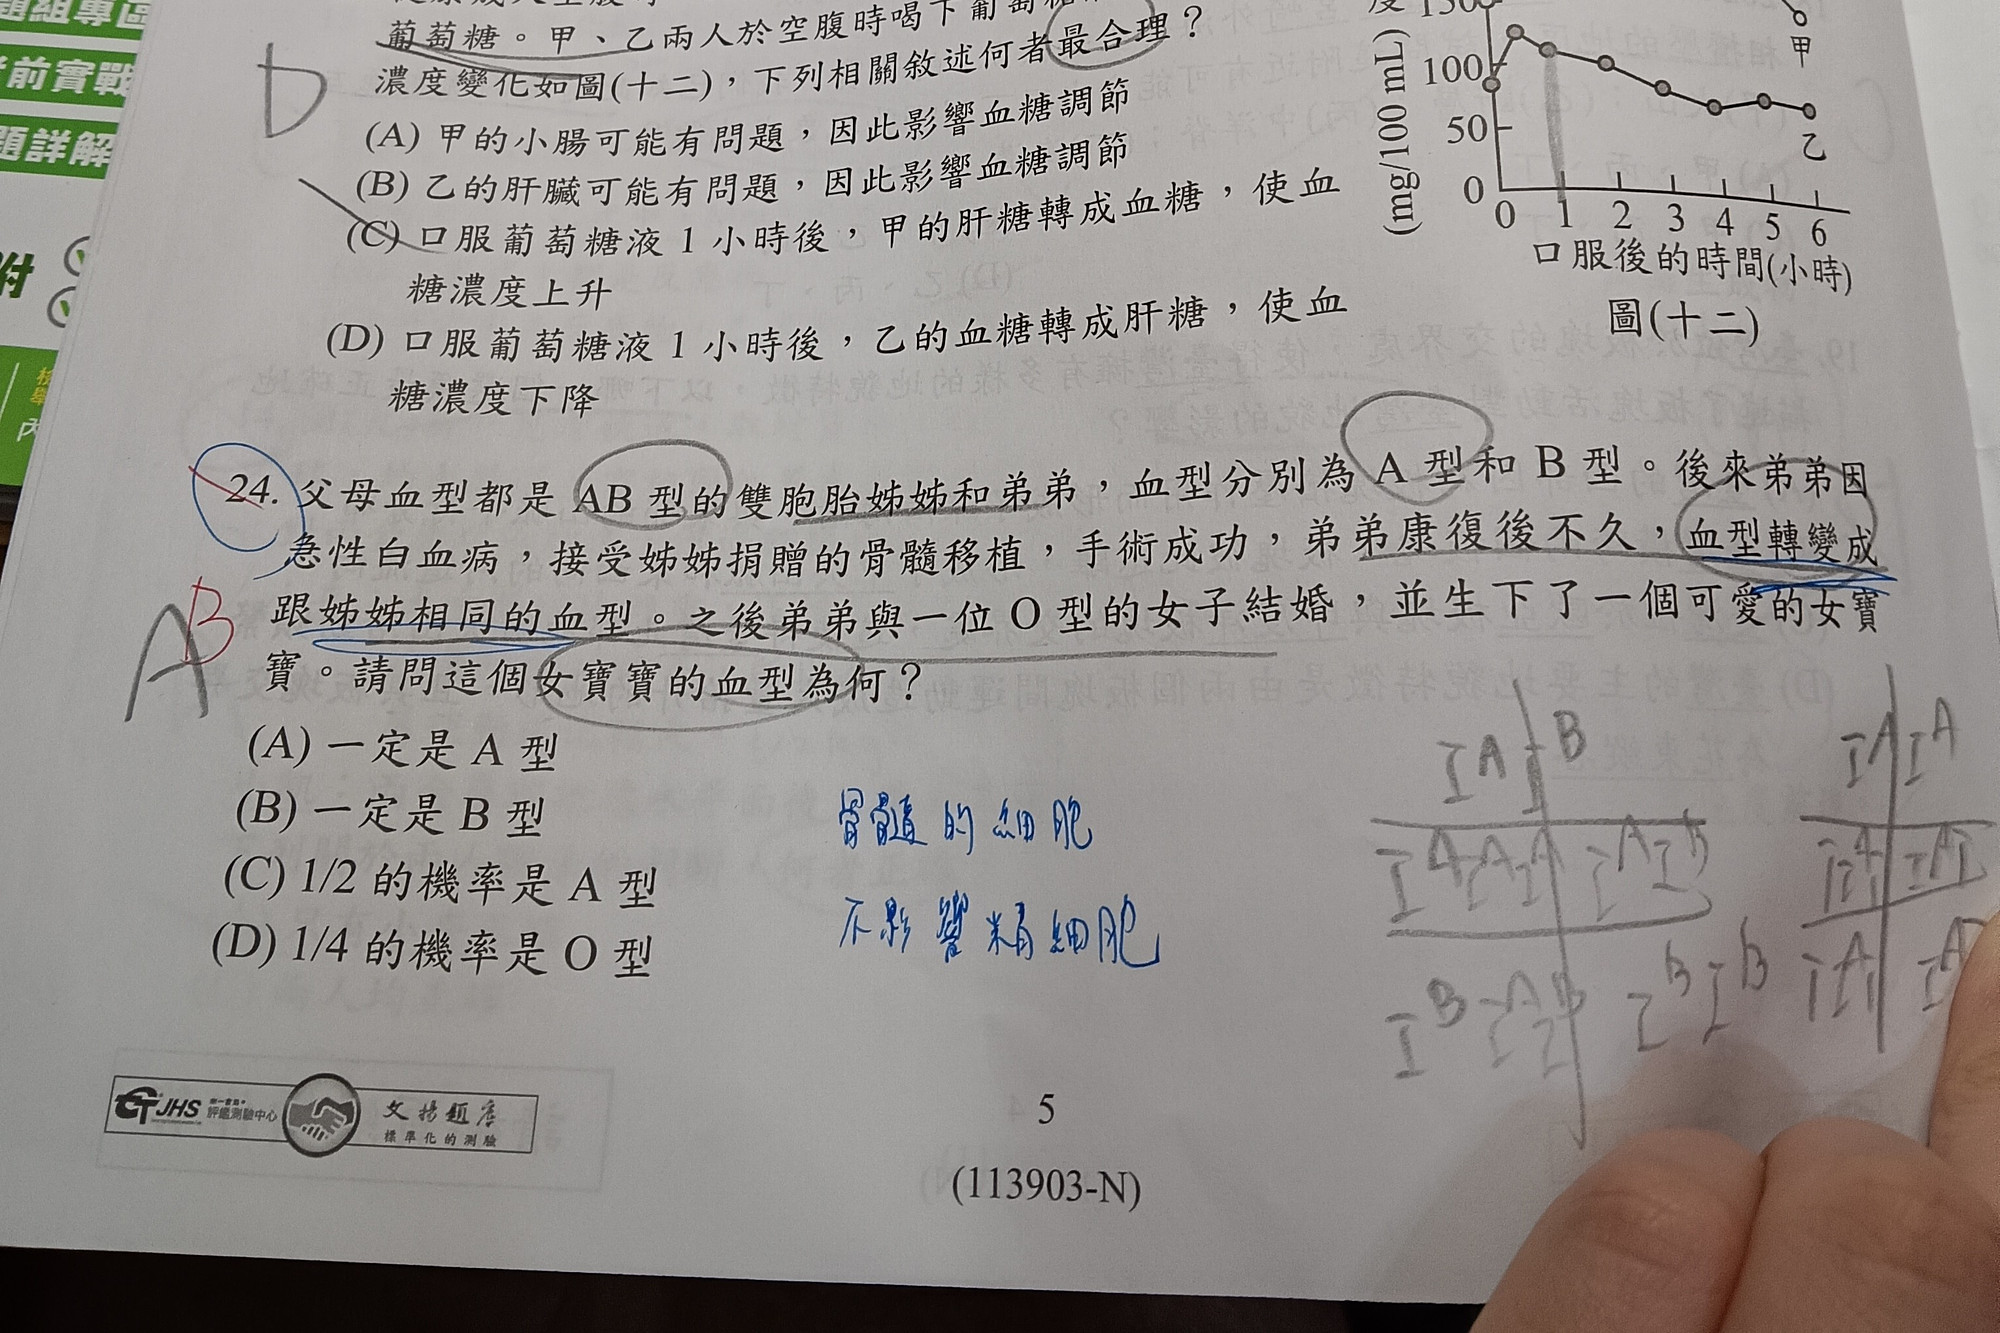 題組專區
前實戰
題詳解
附
葡萄糖。甲、乙兩人於空腹時喝下葡萄糖
濃度變化如圖(十二)，下列相關敘述何者最合理？
D
(A) 甲的小腸可能有問題，因此影響血糖調節
(B) 乙的肝臟可能有問題，因此影響血糖調節
(C) 口服葡萄糖液 1 小時後，甲的肝糖轉成血糖，使血
糖濃度上升
(D) 口服葡萄糖液 1 小時後，乙的血糖轉成肝糖，使血
糖濃度下降
150
100
50
0
(mg/100 mL)
甲
乙
0 1 2 3 4 5 6
口服後的時間(小時)
圖(十二)
24. 父母血型都是 AB 型的雙胞胎姊姊和弟弟，血型分別為 A 型和 B 型。後來弟弟因
急性白血病，接受姊姊捐贈的骨髓移植，手術成功，弟弟康復後不久，血型轉變成
跟姊姊相同的血型。之後弟弟與一位 O 型的女子結婚，並生下了一個可愛的女寶
寶。請問這個女寶寶的血型為何？
A B
(A) 一定是 A 型
(B) 一定是 B 型
(C) 1/2 的機率是 A 型
(D) 1/4 的機率是 O 型
骨髓的細胞
不影響精細胞
I^A I^B
I^A I^A
I^B I^B
CTJHS 評鑑測驗中心
文揚題庫
標準化的測驗
5
(113903-N)